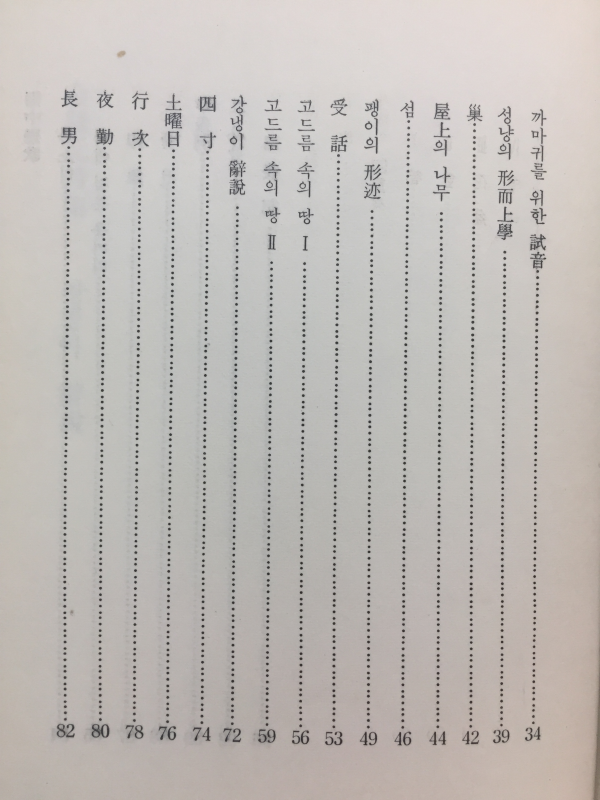 까마귀를 위한 試音 34
성냥의 形而上學 39
巢 42
屋上의 나무 44
섬 46
팽이의 形迹 49
受話 53
고드름 속의 땅 Ⅰ 56
고드름 속의 땅 Ⅱ 59
강냉이 辭說 72
四寸 74
土曜日 76
行次 78
夜勤 80
長男 82